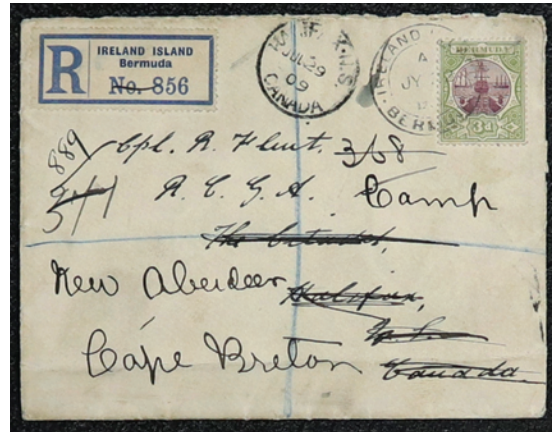 R
IRELAND ISLAND
Bermuda
No. 856
HALIFAX. N.S.
JUL 29
09
CANADA
IRELAND
A
JY
BERMU
BERMUDA
3d
889
Cpl. R. Flint. 368
R. C. G. A. Camp
The Citadel,
New Aberdeen Halifax,
N.S.
Cape Breton Canada.